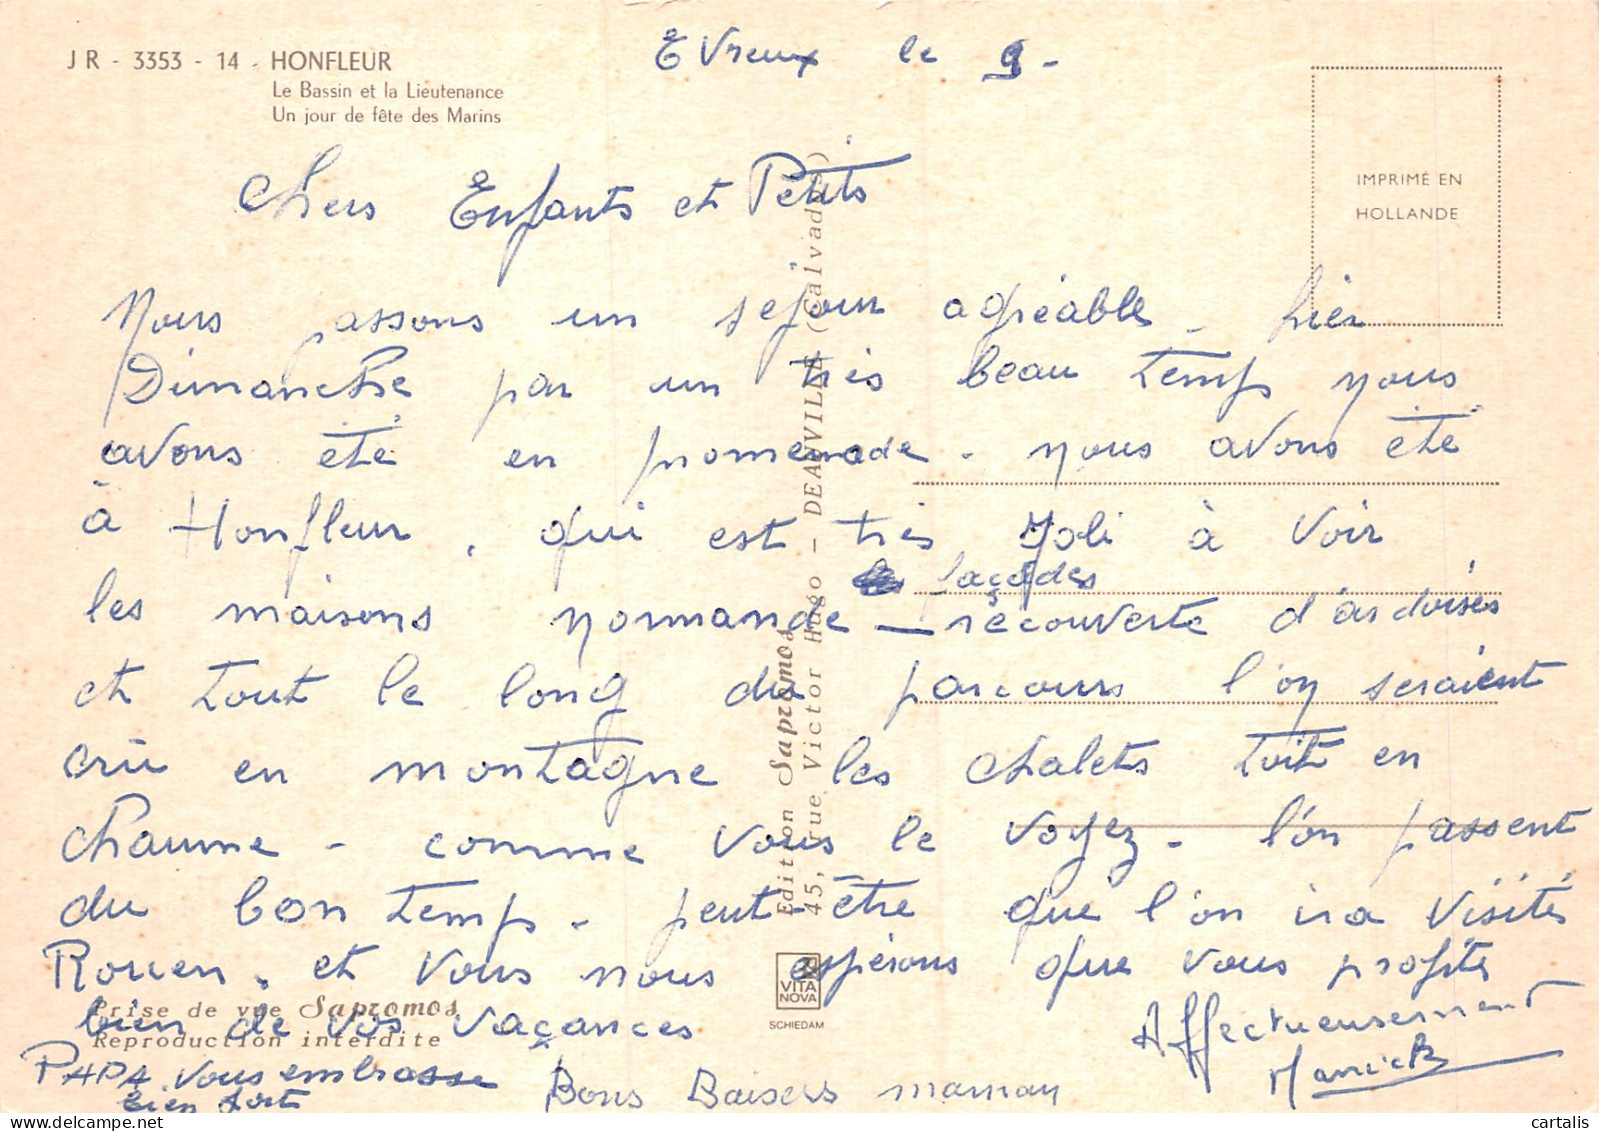 JR - 3353 - 14 - HONFLEUR
Le Bassin et la Lieutenance
Un jour de fête des Marins
Evreux le 9 -
IMPRIMÉ EN
HOLLANDE
Chers Enfants et Petits
Nous passons un sejour agréable - hier
Dimanche par un très beau temps nous
avons été en promenade - nous avons été
à Honfleur, qui est très Joli à voir
façades
les maisons normande — recouverte d'ardoises
et tout le long du parcours l'on seraient
crû en montagne les chalets toit en
chaume - comme vous le voyez - l'on passent
du bon temps - peut-être que l'on ira visités
Rouen, et vous nous espérons que vous profités
bien de vos vaçances
Affectueusement
PAPA vous embrasse
bien fort
Bons Baisers maman
Edition Sapromos
45, rue Victor Hugo - DEAUVILLE (Calvados)
VITA
NOVA
SCHIEDAM
Prise de vue Sapromos
Reproduction interdite
cartalis.com